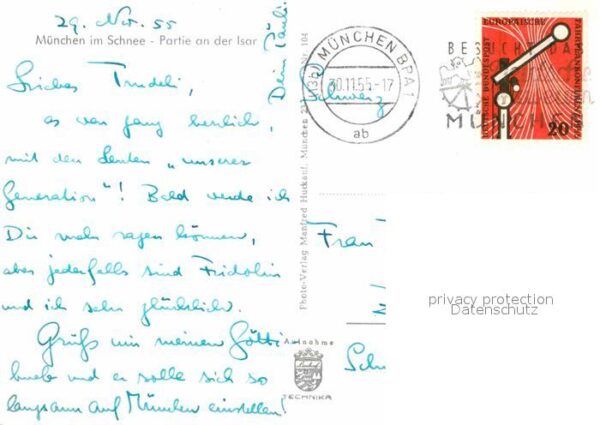 29. Nov. 55
München im Schnee - Partie an der Isar
Liebes Trudeli,
es war ganz herrlich,
mit den Leuten "unserer
Generation"! Bald werde ich
Dir mehr sagen können,
aber jedenfalls sind Fridolin
und ich sehr glücklich.
Grüß mir meinen Götti
bueb und er solle sich so
langsam auf München einstellen!
Dein Pauli
Photo-Verlag Manfred Huckauf, München 23 Nr. 104
Aufnahme
TECHNIKA
MÜNCHEN BPA
30.11.55.-17
ab
BESUCHT DA
MÜNCHEN
EUROPÄISCHE
FAHRPLANKONFERENZ
DEUTSCHE BUNDESPOST
20
Schweiz
Frau
Sch
privacy protection
Datenschutz